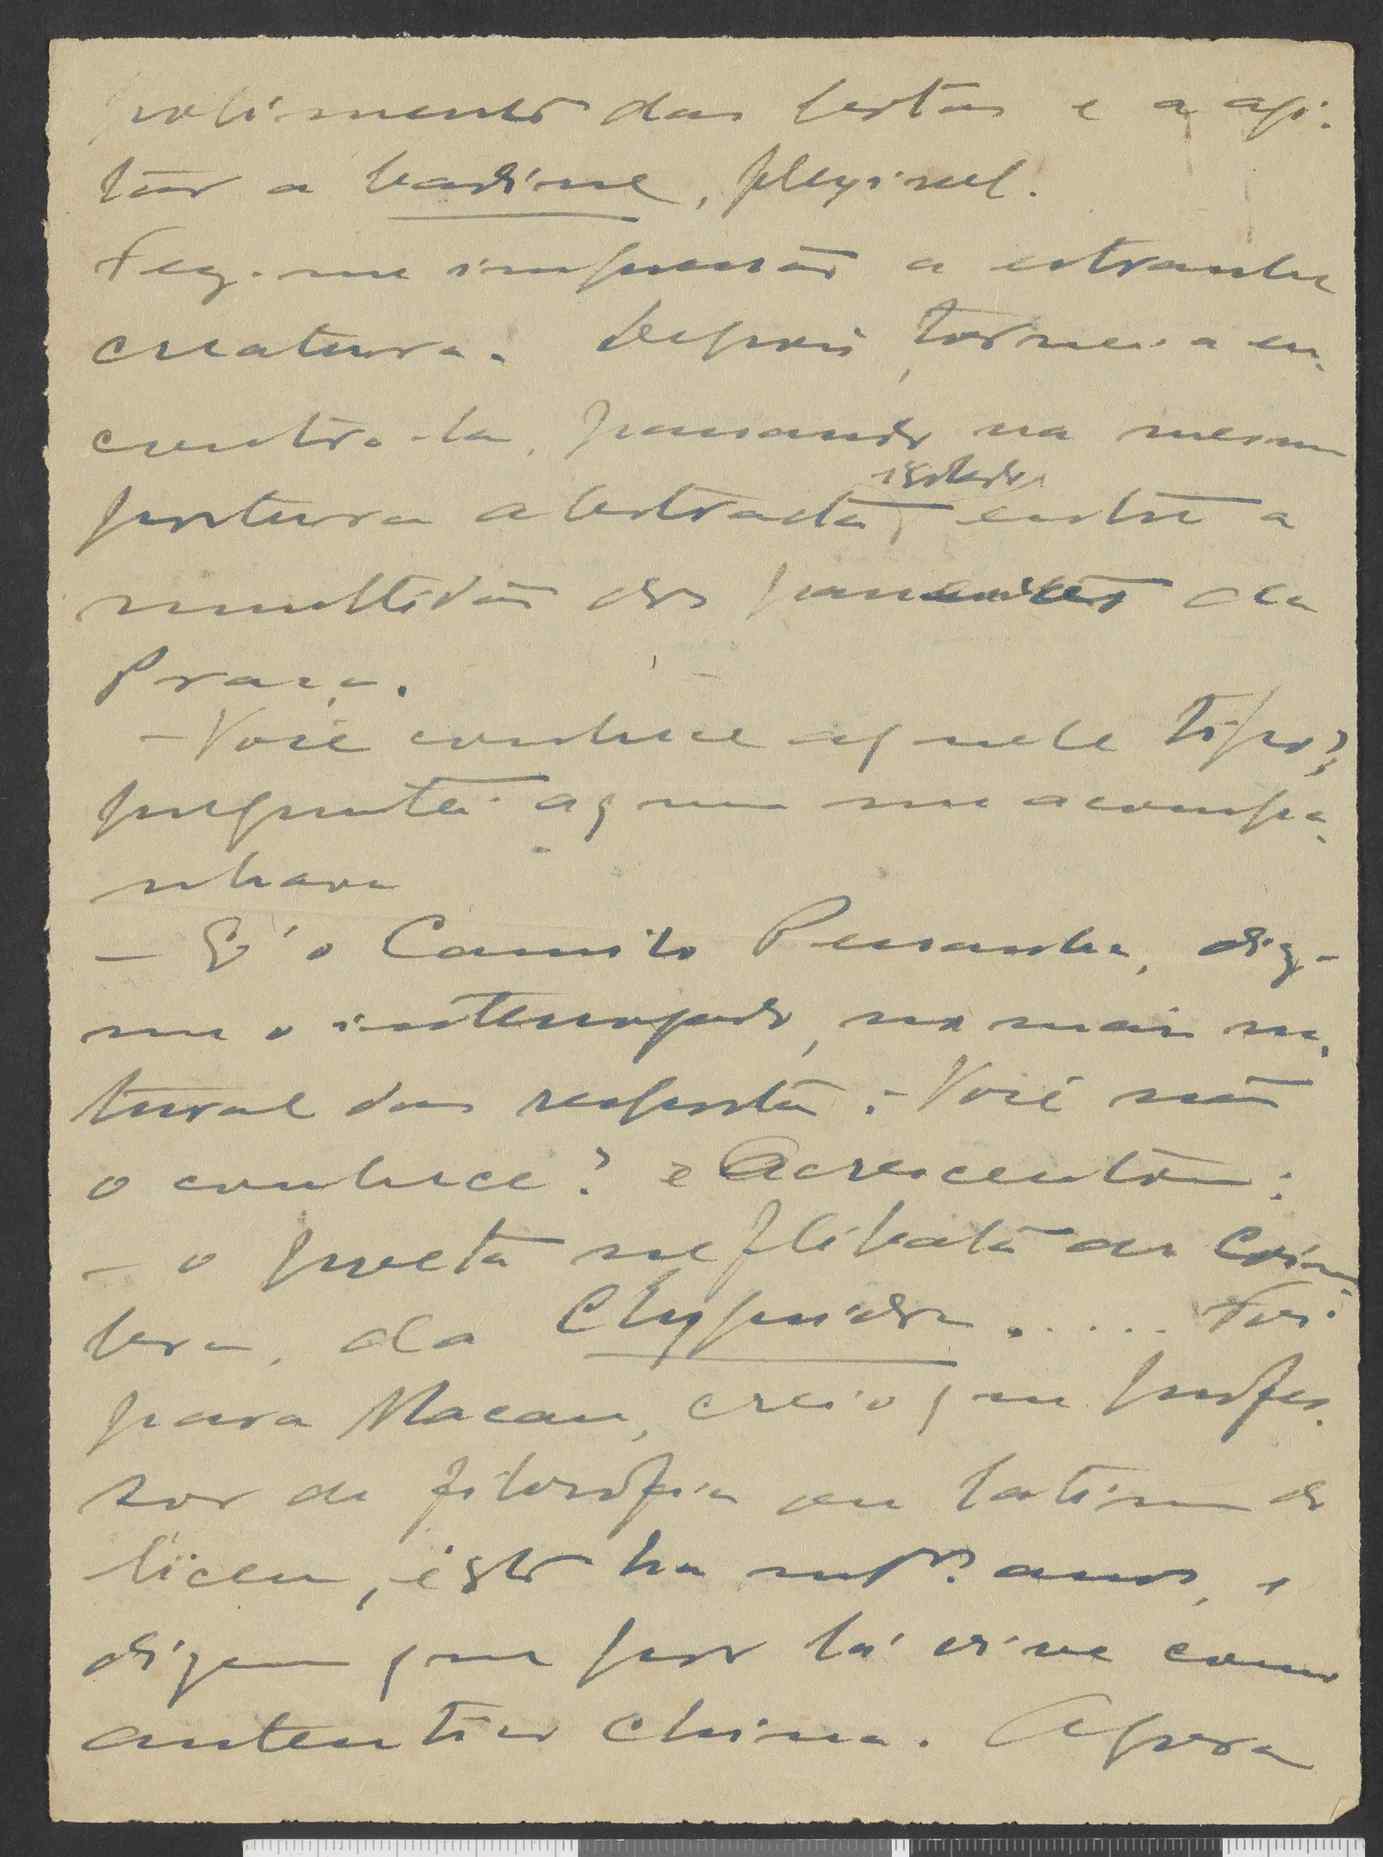 polimento das botas e a agi-
tar a badine, flexivel.
Fez-me impressão a estranha
creatura. Depois, tornei a en-
contra-la, passando na mesma
postura abstracta, isolado, entre a
multidão dos passeantes da
Praça.
- Você conhece aquele tipo?
preguntei a quem me acompa-
nhava
- E' o Camilo Pessanha, diz-
me o interrogado, na mais na-
tural das respostas: - Você não
o conhece? e Acrescentou:
- o poeta nefelibata de Coim
bra, da Clepsidra..... Foi
para Macau, creio que profes-
sor de filosofia ou latim do
liceu, isto ha anos, e
dizem que por lá vive como
autentico china. Agora